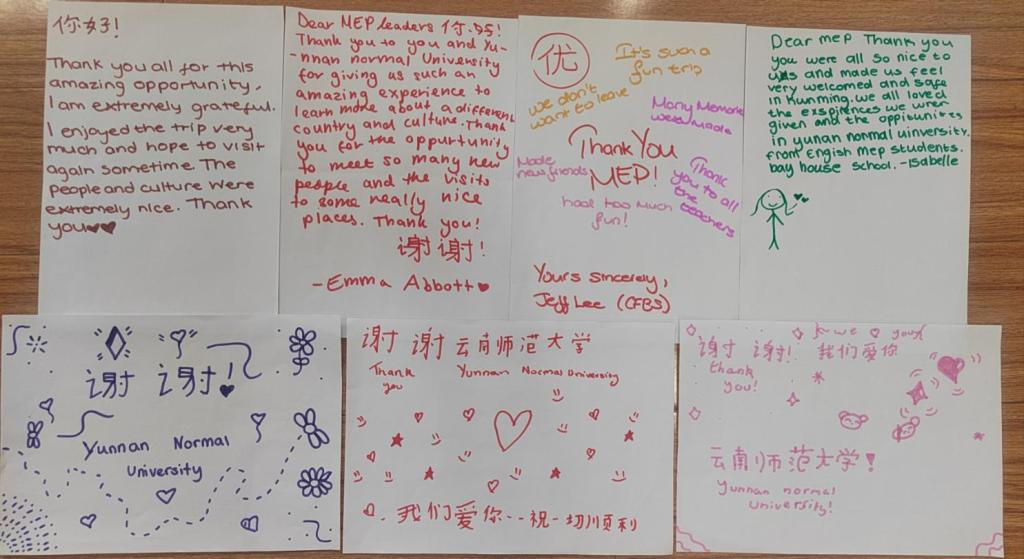 你好!
Thank you all for this
amazing opportunity,
I am extremely grateful.
I enjoyed the trip very
much and hope to visit
again sometime. The
people and culture were
extremely nice. Thank
you
Dear MEP leaders 你好!
Thank you to you and Yu-
-nnan normal University
for giving us such an
amazing experience to
learn more about a different
country and culture. Thank
you for the oppurtunity
to meet so many new
people and the visits
to some really nice
places. Thank you!
谢谢!
-Emma Abbott
优
It's such a
fun trip
we don't
want to leave
Many Memories
were made
Thank You
MEP!
Made
new friends
Thank
you to all
the teachers
had too much
fun!
Yours sincerely,
Jeff Lee (CFBS)
Dear mep Thank you
you were all so nice to
us and made us feel
very welcomed and safe
in kunming. we all loved
the exspirences we wrer
given and the oppitunities
in yunan normal uinversity.
from Engish mep students.
bay house school. -Isabelle
谢 谢!
Yunnan Normal
University
谢 谢 云南师范大学
Thank you
Yunnan Normal University
我们爱你--祝一切顺利
we you!
谢 谢! 我们爱你
thank
you!
云南师范大学!
yunnan normal
university!